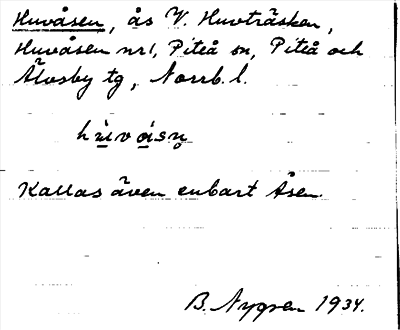 Huvåsen, ås V. Huvträsken,
Huvåsen nr 1, Piteå sn, Piteå och
Älvsby tg, Norrb. l.
Kallas även enbart Åsen.
B. Nygren 1934.